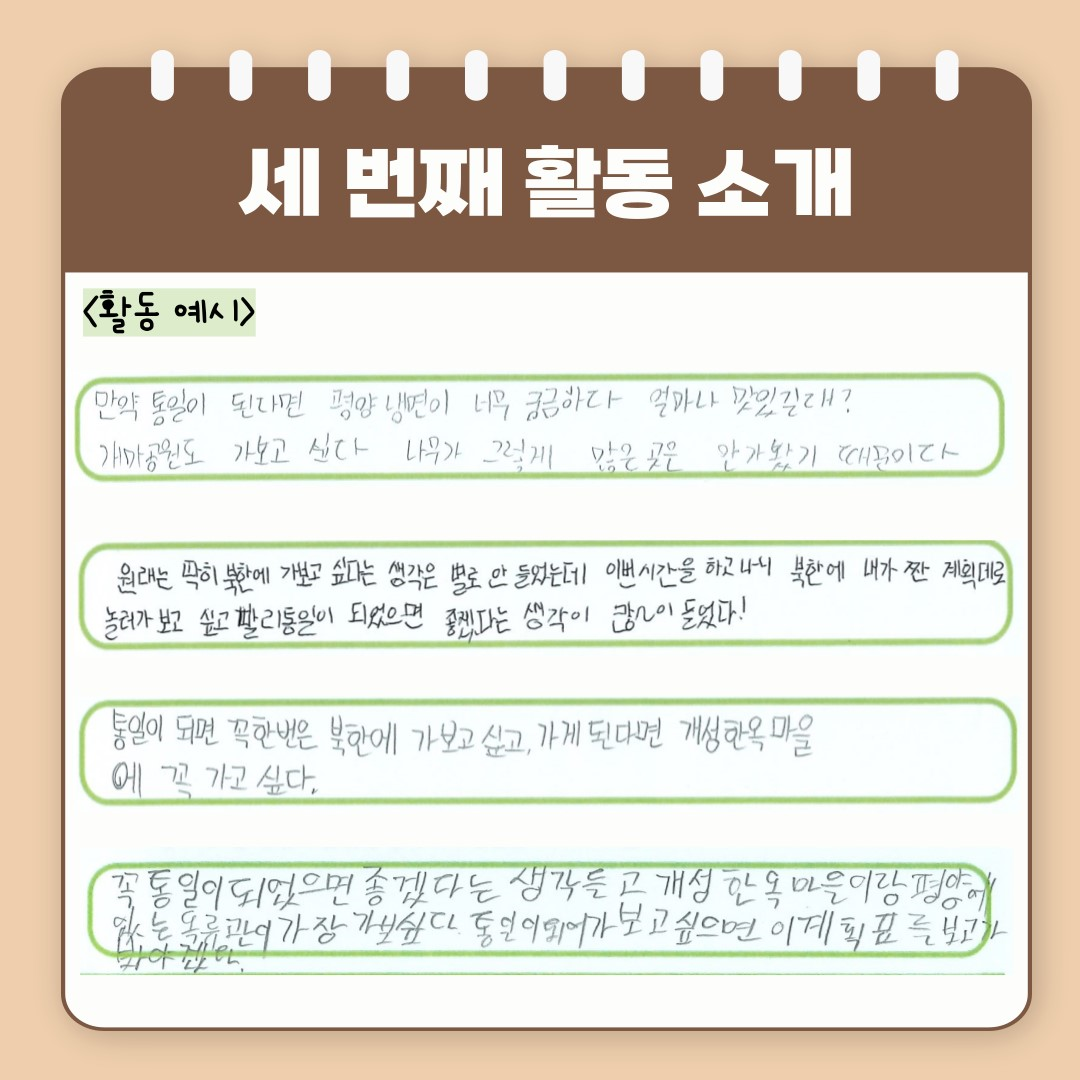 세 번째 활동 소개
<활동 예시>
만약 통일이 된다면 평양냉면이 너무 궁금하다 얼마나 맛있길래?
개마공원도 가보고 싶다 나무가 그렇게 많은 곳은 안가봤기 때문이다
원래는 딱히 북한에 가보고 싶다는 생각은 별로 안 들었는데 이번시간을 하고나니 북한에 내가 짠 계획대로
놀러가 보고 싶고 빨리통일이 되었으면 좋겠다는 생각이 많이 들었다!
통일이 되면 꼭한번은 북한에 가보고싶고, 가게된다면 개성한옥마을
에 꼭 가고싶다.
꼭 통일이되었으면 좋겠다는 생각들고 개성 한옥마을이랑 평양에
있는 옥류관이 가장 가보싶다. 통일이되어가보고싶으면 이계획표를 보고가
봐야겠다.